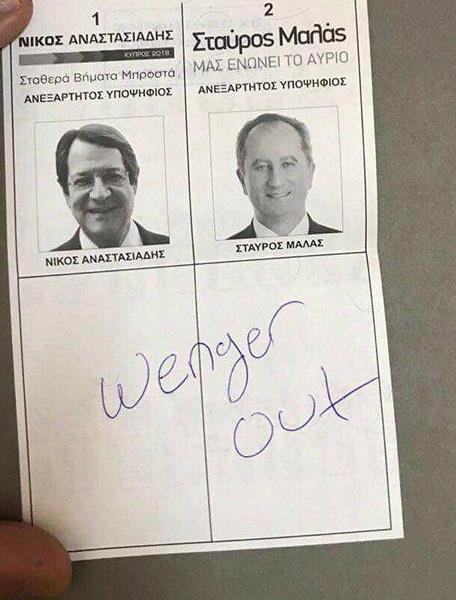 1
ΝΙΚΟΣ ΑΝΑΣΤΑΣΙΑΔΗΣ
ΚΥΠΡΟΣ 2018
Σταθερά Βήματα Μπροστά
ΑΝΕΞΑΡΤΗΤΟΣ ΥΠΟΨΗΦΙΟΣ
ΝΙΚΟΣ ΑΝΑΣΤΑΣΙΑΔΗΣ
2
Σταύρος Μαλάς
ΜΑΣ ΕΝΩΝΕΙ ΤΟ ΑΥΡΙΟ
ΑΝΕΞΑΡΤΗΤΟΣ ΥΠΟΨΗΦΙΟΣ
ΣΤΑΥΡΟΣ ΜΑΛΑΣ
wenger
out